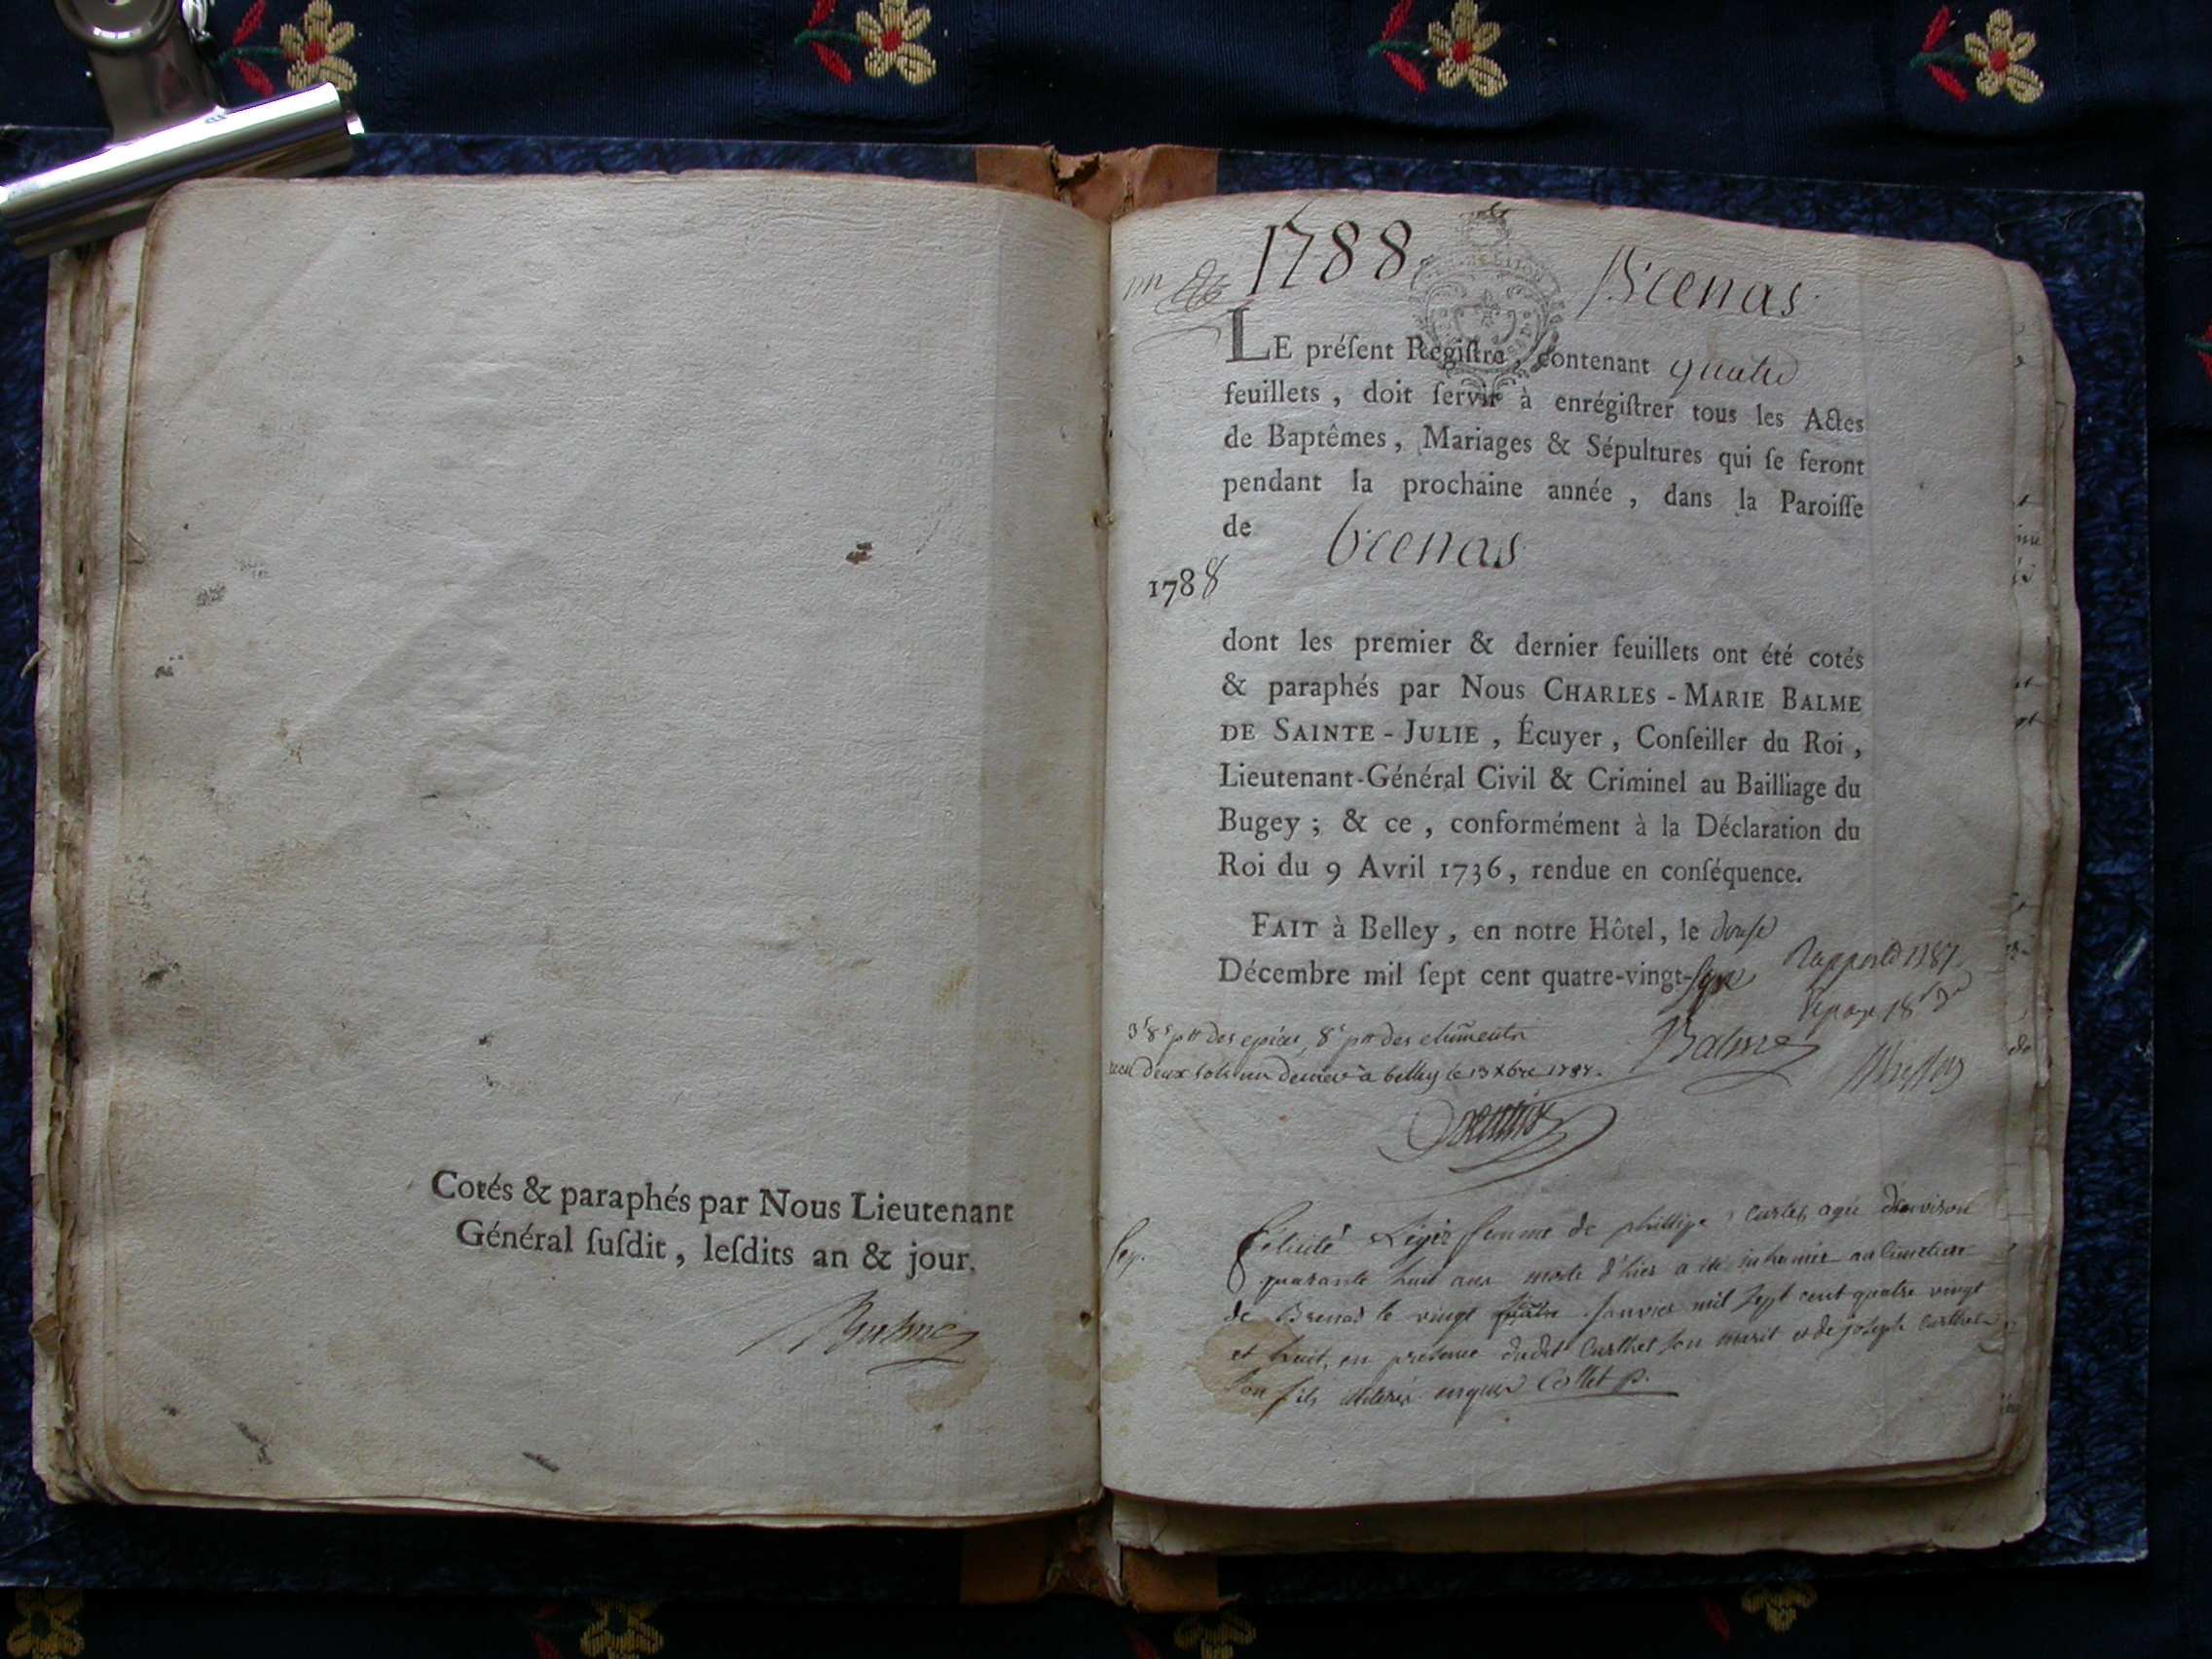 Cotés & paraphés par Nous Lieutenant
Général ſuſdit, leſdits an & jour.
Balme
1788
Brenas
LE préſent Regiſtre, contenant quatre
feuillets, doit ſervir à enrégiſtrer tous les Actes
de Baptêmes, Mariages & Sépultures qui ſe feront
pendant la prochaine année, dans la Paroiſſe
de brenas
1788
dont les premier & dernier feuillets ont été cotés
& paraphés par Nous CHARLES-MARIE BALME
DE SAINTE-JULIE, Écuyer, Conſeiller du Roi,
Lieutenant-Général Civil & Criminel au Bailliage du
Bugey; & ce, conformément à la Déclaration du
Roi du 9 Avril 1736, rendue en conſéquence.
FAIT à Belley, en notre Hôtel, le douse
Décembre mil ſept cent quatre-vingt-sept
des epices, des
deux sols un denier a belley le 13 Xbre 1787.
Balme
félicité femme de philipe agée d'environ
quarante huit ans morte d'hier a été inhumée au cimetiere
de Brenas le vingt janvier mil sept cent quatre vingt
et huit, en présence dudit Carthet son marit et de joseph Carthet
son fils illiterés enquis Collet p.